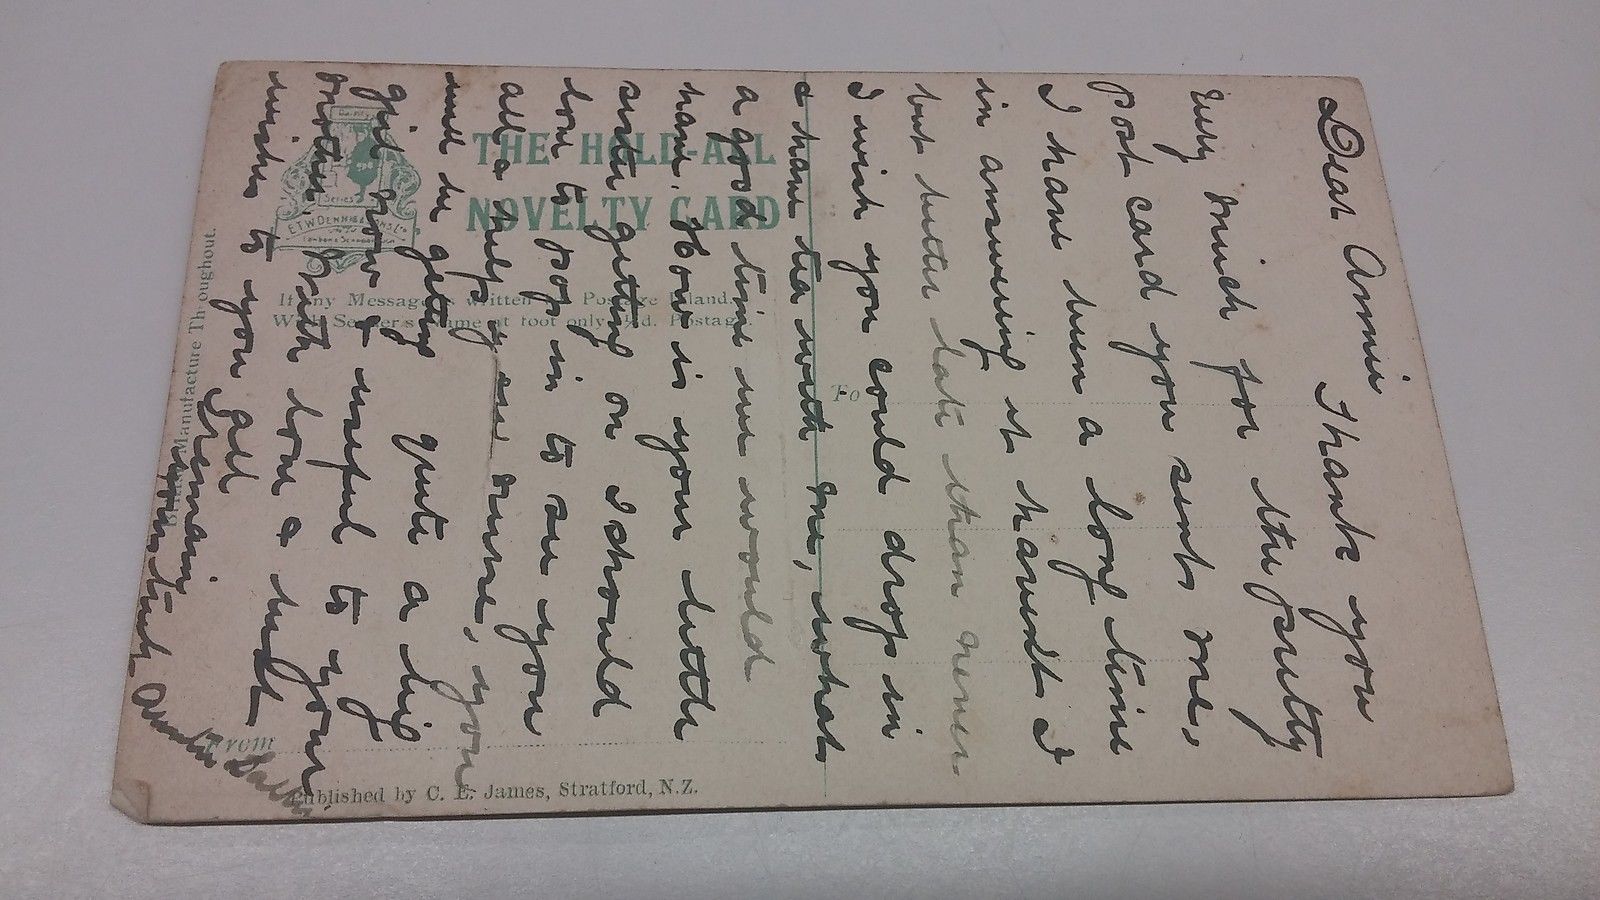 Dear Annie Thank you
very much for the pretty
post card you sent me,
I have been a long time
in answering it havent I
but better late than never
I wish you could drop in
& have tea with me, what
a good time we would
have. How is your little
sister getting on I should
love to pop in to see you
all & help you nurse, you
will be getting quite a big
girl now & useful to your
mother, With love & best
wishes to you all
I remain
yours truly
THE HOLD-ALL
NOVELTY CARD
Series
E.T.W. DENNIS & SONS LTD
LONDON & SCARBOROUGH
If any Message is written Postage Inland.
With Sender's name at foot only ½d. Postage.
To
From
British Manufacture Throughout.
Published by C. E. James, Stratford, N.Z.